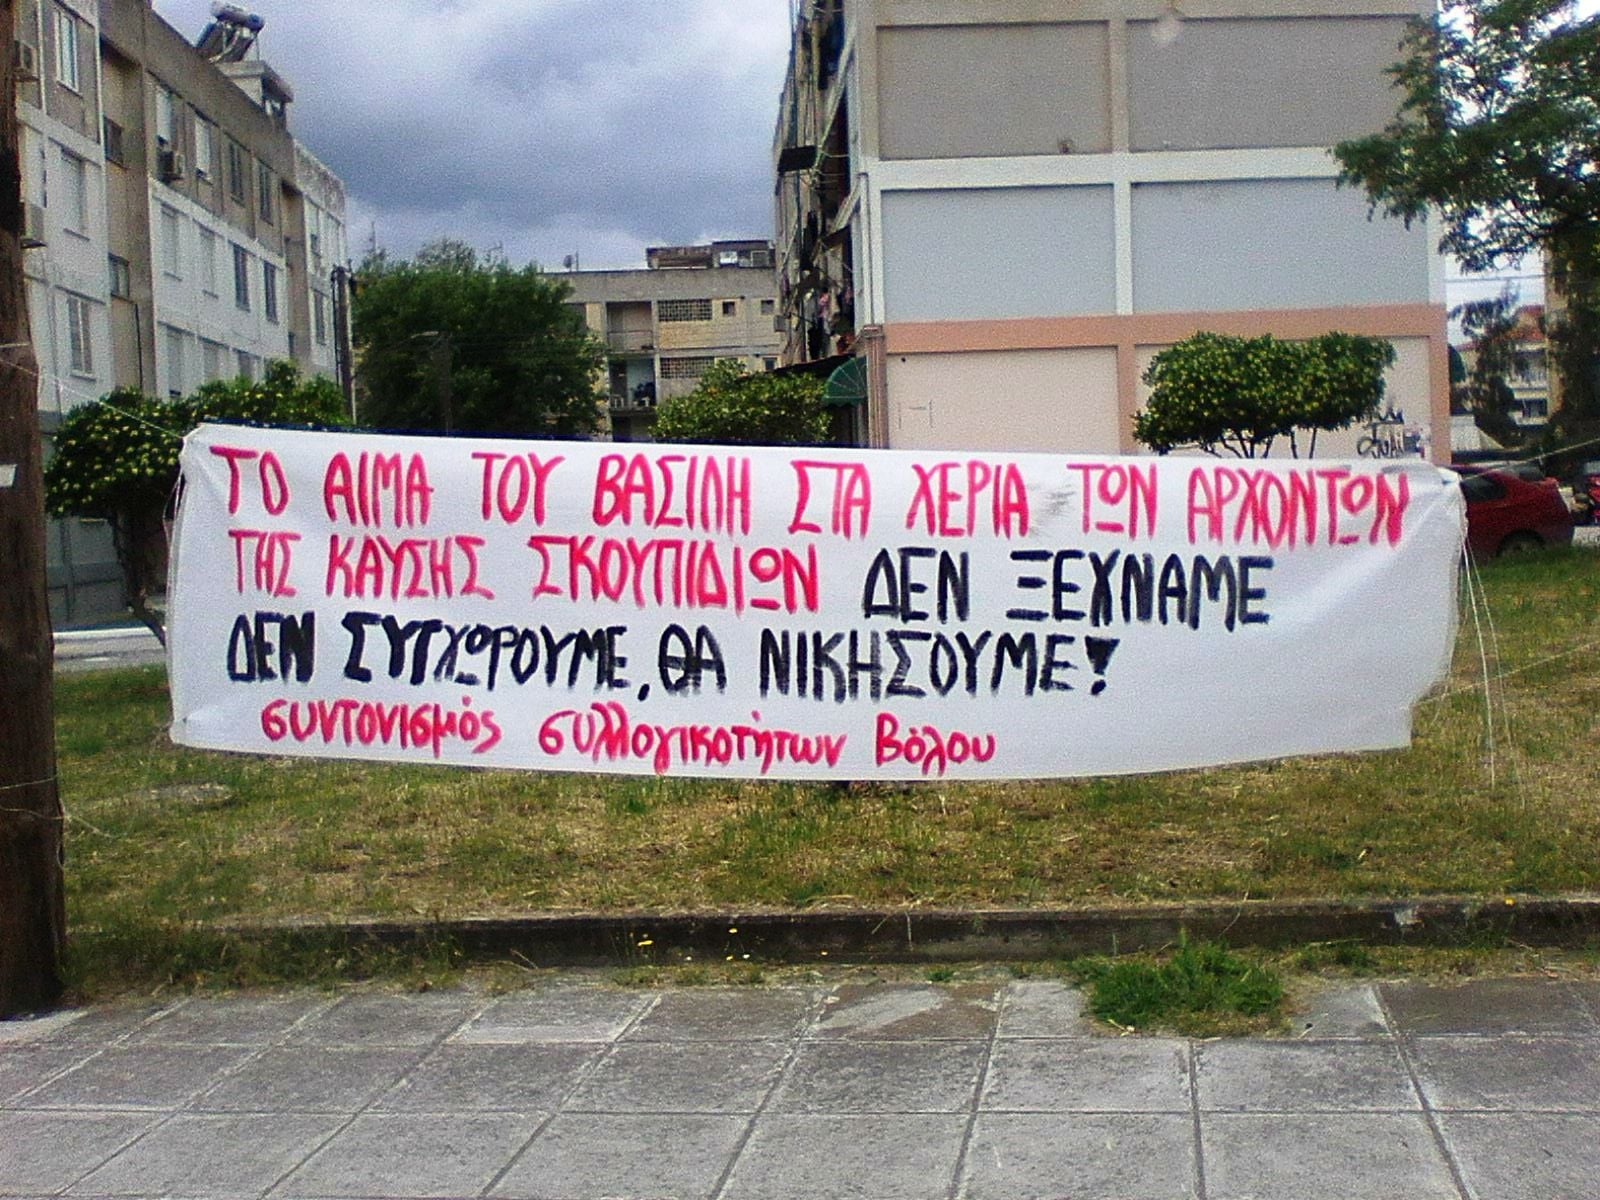 ΤΟ ΑΙΜΑ ΤΟΥ ΒΑΣΙΛΗ ΣΤΑ ΧΕΡΙΑ ΤΩΝ ΑΡΧΟΝΤΩΝ
ΤΗΣ ΚΑΥΣΗΣ ΣΚΟΥΠΙΔΙΩΝ ΔΕΝ ΞΕΧΝΑΜΕ
ΔΕΝ ΣΥΓΧΩΡΟΥΜΕ, ΘΑ ΝΙΚΗΣΟΥΜΕ!
συντονισμός συλλογικοτήτων Βόλου